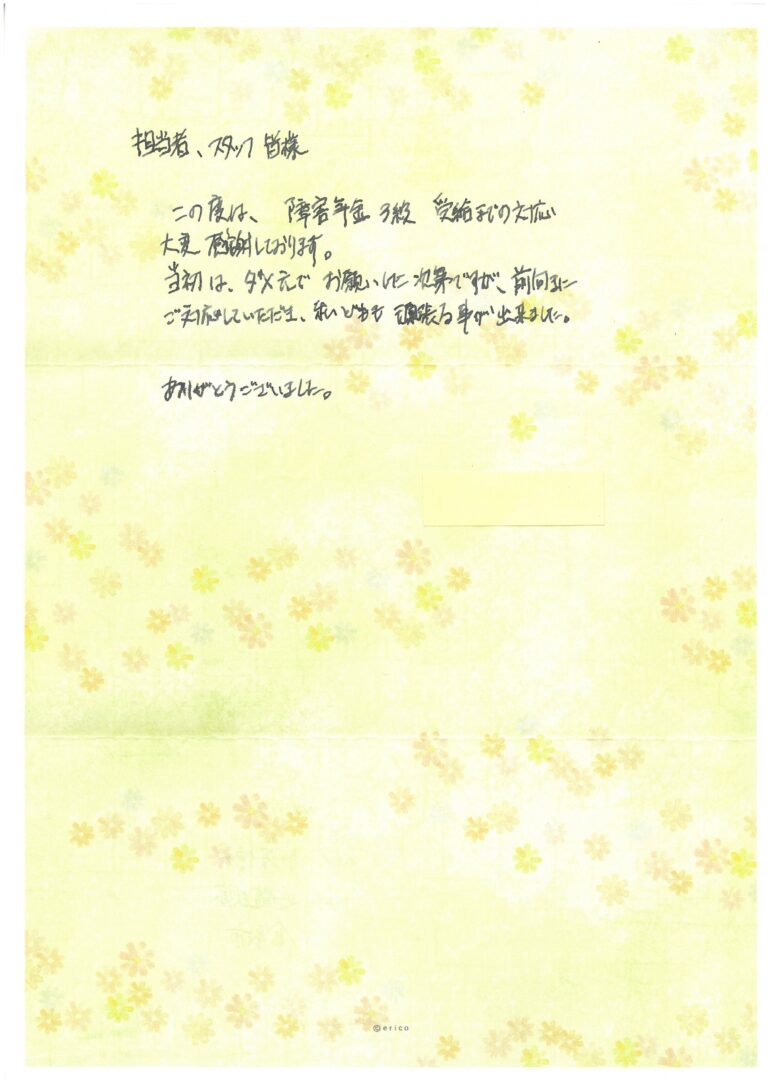 担当者、スタッフ皆様
この度は、障害年金3級 受給までの対応
大変感謝しております。
当初は、ダメ元でお願いした次第ですが、前向きに
ご対応していただき、私どもも頑張る事が出来ました。
ありがとうございました。
©erico